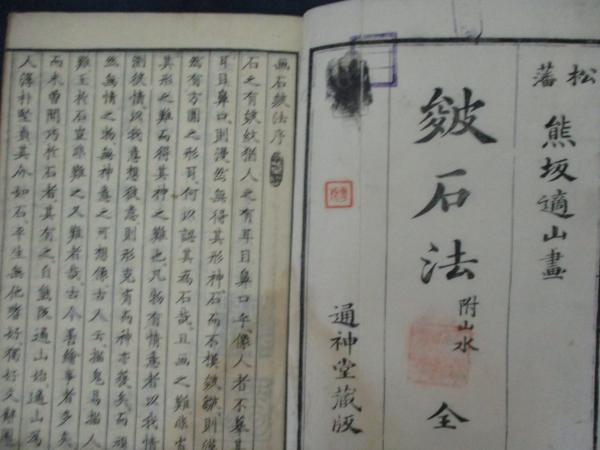 松藩
熊坂適山畫
皴石法 附山水 全
通神堂蔵版
画石皴法序
石之有皴紋猶人之有耳目鼻口乎、像人者不摹其
耳目鼻口、則漫然無得其形神石而不模皴皺、則
然有方圓之形耳、何以認其爲石哉、且画之難非肖
其形之難而得其神之難也、凡物有情意者以我情
測彼情、以我意想彼意則形克肖而神亦獲矣、而頑
然無情之物、無神意之可想像、古人云、描鬼易描人
難至於石豈非難之又難者哉、古今善繪事者多矣
而未曽聞巧於石者其有之、自熊阪適山始、適山爲
人淳朴堅貞其介如石平生無他嗜好、獨好文辞